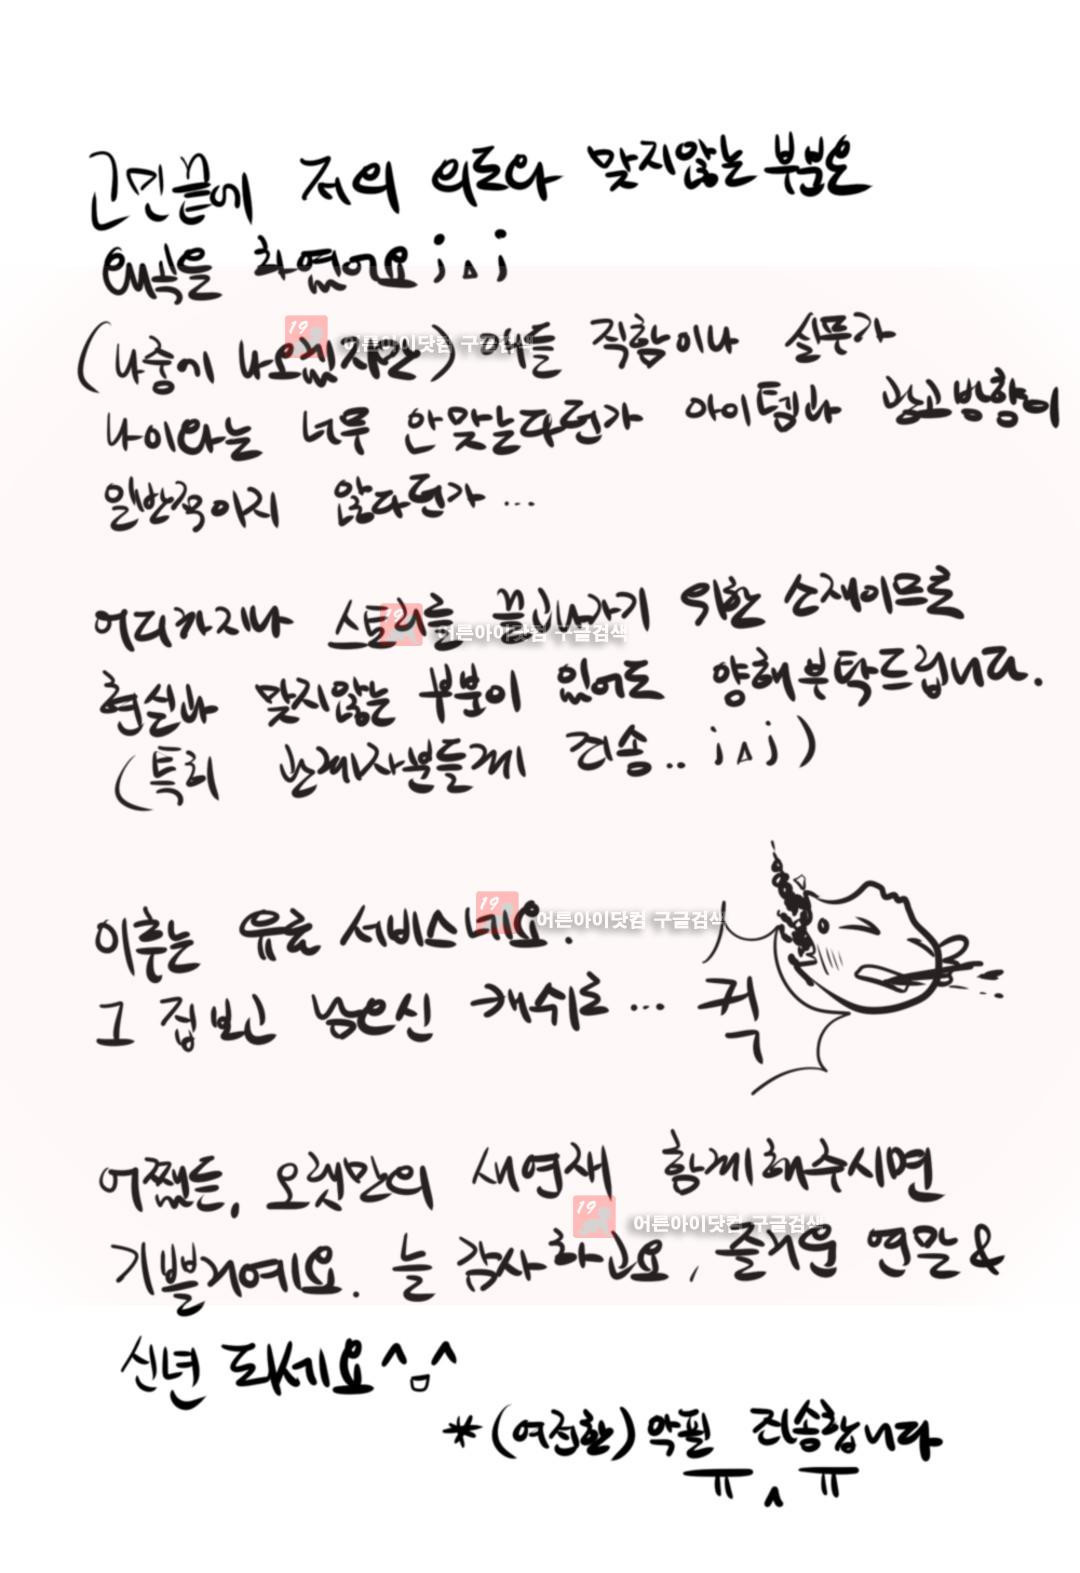 고민끝에 저의 의도와 맞지않는 부분은
왜곡을 하였어요 ; ㅅ ;
(나중에 나오겠지만) 애들 직함이나 실무가
나이와는 너무 안맞는다던가 아이템과 광고방향이
일반적이지 않다던가 ...
어디까지나 스토리를 끌고나가기 위한 소재이므로
현실과 맞지않는 부분이 있어도 양해부탁드립니다.
(특히 관계자분들께 죄송.. ; ㅅ ; )
이후는 유료 서비스네요.
그 집보고 남으신 캐쉬로 ... 퀵
어쨌든, 오랫만의 새연재 함께해주시면
기쁠거예요. 늘 감사하고요, 즐거운 연말 &
신년 되세요 ^ㅁ^
*(여전한) 악필 죄송합니다
ㅠ ㅅ ㅠ
19 어른아이닷컴 구글검색
19 어른아이닷컴 구글검색
19 어른아이닷컴 구글검색
19 어른아이닷컴 구글검색